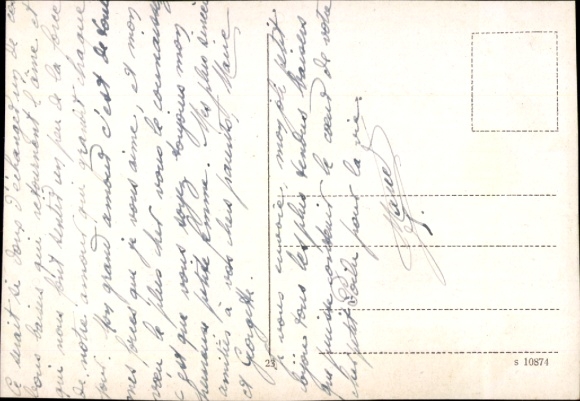 Ce serait si doux d'échanger un de ces
bons baisers qui retournent l'âme et
qui nous font sentir un peu de la force
de notre amour qui grandit chaque
jour. Mon grand amour c'est de toutes
mes forces que je vous aime, et mon
vœu le plus cher vous le connaissez
c'est que vous soyez toujours mon
petite femme. Mes plus sincères
amitiés à vos chers parents Marie
et Georgette.
Je vous envoie, mon joli petit
bijou tous les plus tendres baisers
que puisse contenir le cœur de votre
petit Poilu pour la vie.
23
S 10874